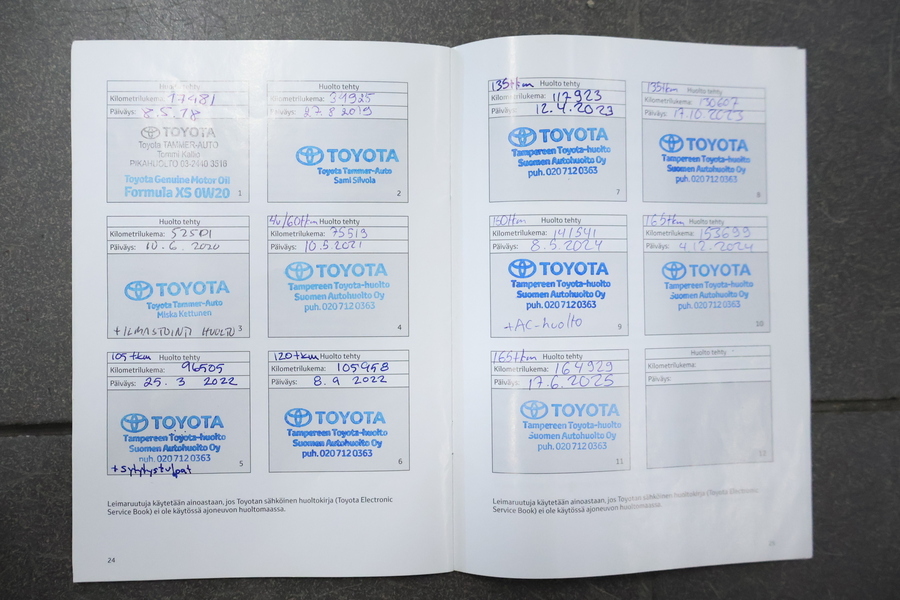 Huolto tehty
Kilometrilukema: 17481
Päiväys: 8.5.18
TOYOTA
Toyota TAMMER-AUTO
Tommi Kallio
PIKAHUOLTO 03-2440 3818
Toyota Genuine Motor Oil
Formula XS 0W20
1
Huolto tehty
Kilometrilukema: 34925
Päiväys: 27.8.2019
TOYOTA
Toyota Tammer-Auto
Sami Silvola
2
Huolto tehty
Kilometrilukema: 52501
Päiväys: 10.6.2020
TOYOTA
Toyota Tammer-Auto
Miska Kettunen
+ILMASTOINTI HUOLTO 3
4v/60tkm Huolto tehty
Kilometrilukema: 75519
Päiväys: 10.5.2021
TOYOTA
Tampereen Toyota-huolto
Suomen Autohuolto Oy
puh. 020 712 0363
4
105tkm Huolto tehty
Kilometrilukema: 96505
Päiväys: 25. 3 2022
TOYOTA
Tampereen Toyota-huolto
Suomen Autohuolto Oy
puh. 020 712 0363
+sytytystulpat
5
120tkm Huolto tehty
Kilometrilukema: 105958
Päiväys: 8. 9 2022
TOYOTA
Tampereen Toyota-huolto
Suomen Autohuolto Oy
puh. 020 712 0363
6
Leimaruutuja käytetään ainoastaan, jos Toyotan sähköinen huoltokirja (Toyota Electronic
Service Book) ei ole käytössä ajoneuvon huoltomaassa.
24
135tkm Huolto tehty
Kilometrilukema: 117923
Päiväys: 12.4.2023
TOYOTA
Tampereen Toyota-huolto
Suomen Autohuolto Oy
puh. 020 712 0363
7
135tkm Huolto tehty
Kilometrilukema: 130607
Päiväys: 17.10.2023
TOYOTA
Tampereen Toyota-huolto
Suomen Autohuolto Oy
puh. 020 712 0363
8
150tkm Huolto tehty
Kilometrilukema: 141341
Päiväys: 8.5.2024
TOYOTA
Tampereen Toyota-huolto
Suomen Autohuolto Oy
puh. 020 712 0363
+AC-huolto
9
165tkm Huolto tehty
Kilometrilukema: 153699
Päiväys: 4.12.2024
TOYOTA
Tampereen Toyota-huolto
Suomen Autohuolto Oy
puh. 020 712 0363
10
165tkm Huolto tehty
Kilometrilukema: 164929
Päiväys: 17.6.2025
TOYOTA
Tampereen Toyota-huolto
Suomen Autohuolto Oy
puh. 020 712 0363
11
Huolto tehty
Kilometrilukema:
Päiväys:
12
Leimaruutuja käytetään ainoastaan, jos Toyotan sähköinen huoltokirja (Toyota Electronic
Service Book) ei ole käytössä ajoneuvon huoltomaassa.